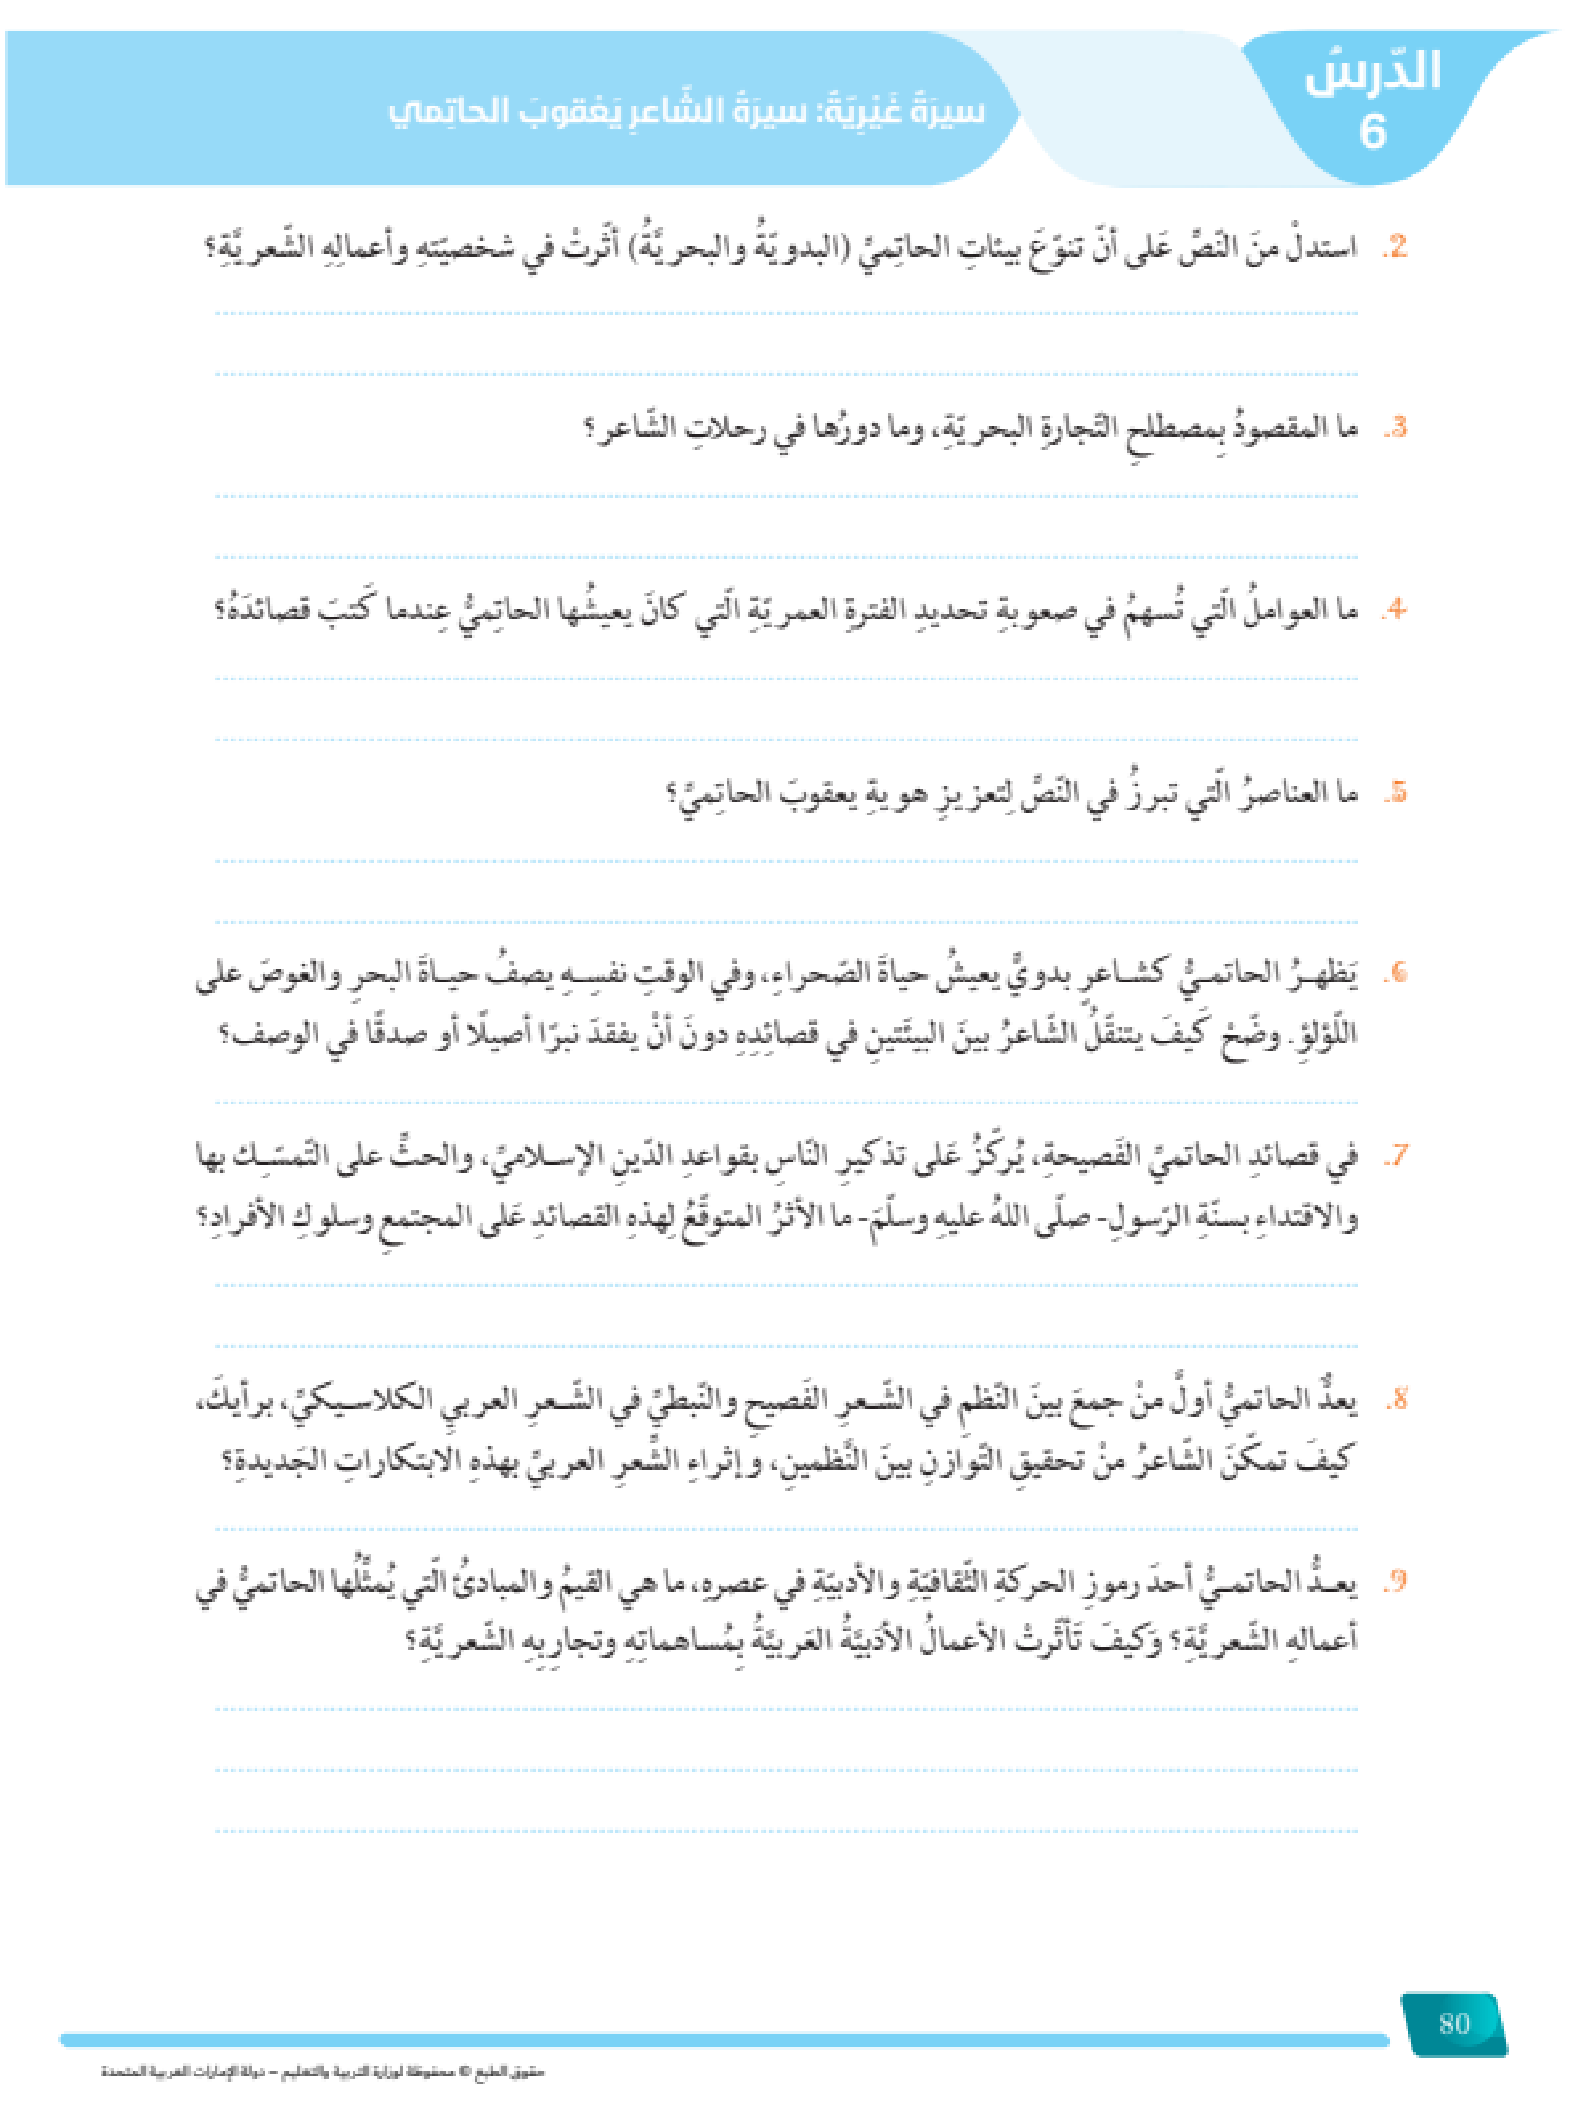 الدّرسُ
6
سيرَةٌ غَيْرِيّةٌ: سيرَةُ الشّاعرِ يَعْقوبَ الحاتِمي
2. استدلْ منَ النّصِّ عَلى أنّ تنوّعَ بيئاتِ الحاتِميِّ (البدويّةُ والبحريَّةُ) أثّرتْ في شخصيّتهِ وأعمالِهِ الشّعريَّةِ؟
3. ما المقصودُ بِمصطلحِ التّجارةِ البحريّةِ، وما دورُها في رحلاتِ الشّاعر؟
4. ما العواملُ الّتي تُسهمُ في صعوبةِ تحديدِ الفترةِ العمريّةِ الّتي كانَ يعيشُها الحاتِميُّ عِندما كَتبَ قصائدَهُ؟
5. ما العناصرُ الّتي تبرزُ في النّصِّ لِتعزيزِ هويةِ يعقوبَ الحاتِميِّ؟
6. يَظهرُ الحاتميُّ كشاعرٍ بدويٍّ يعيشُ حياةَ الصّحراءِ، وفي الوقتِ نفسِهِ يصفُ حياةَ البحرِ والغوصَ على
اللّؤلؤِ. وضّحْ كَيفَ يتنقّلُ الشّاعرُ بينَ البيئَتينِ في قصائِدِهِ دونَ أنْ يفقدَ نبرًا أصيلًا أو صدقًا في الوصف؟
7. في قصائدِ الحاتميِّ الفَصيحةِ، يُركّزُ عَلى تذكيرِ النّاسِ بقواعدِ الدّينِ الإسلاميِّ، والحثِّ على التّمسّكِ بها
والاقتداءِ بسنّةِ الرّسولِ- صلّى اللهُ عليهِ وسلّمَ- ما الأثرُ المتوقّعُ لِهذهِ القصائدِ عَلى المجتمعِ وسلوكِ الأفرادِ؟
8. يعدُّ الحاتميُّ أولَّ منْ جمعَ بينَ النّظمِ في الشّعرِ الفَصيحِ والنّبطيِّ في الشّعرِ العربيِ الكلاسيكيِّ، برأيكَ،
كيفَ تمكّنَ الشّاعرُ منْ تحقيقِ التّوازنِ بينَ النَّظمينِ، وإثراءِ الشّعرِ العربيِّ بهذهِ الابتكاراتِ الجَديدةِ؟
9. يعدُّ الحاتميُّ أحدَ رموزِ الحركةِ الثّقافيّةِ والأدبيّةِ في عصرِهِ، ما هي القيمُ والمبادئُ الّتي يُمثّلُها الحاتميُّ في
أعمالهِ الشّعريَّةِ؟ وَكيفَ تَأثّرتْ الأعمالُ الأدَبيَّةُ العَربيَّةُ بِمُساهماتِهِ وتجارِبِهِ الشّعريَّةِ؟
80
حقوق الطبع © محفوظة لوزارة التربية والتعليم – دولة الإمارات العربية المتحدة